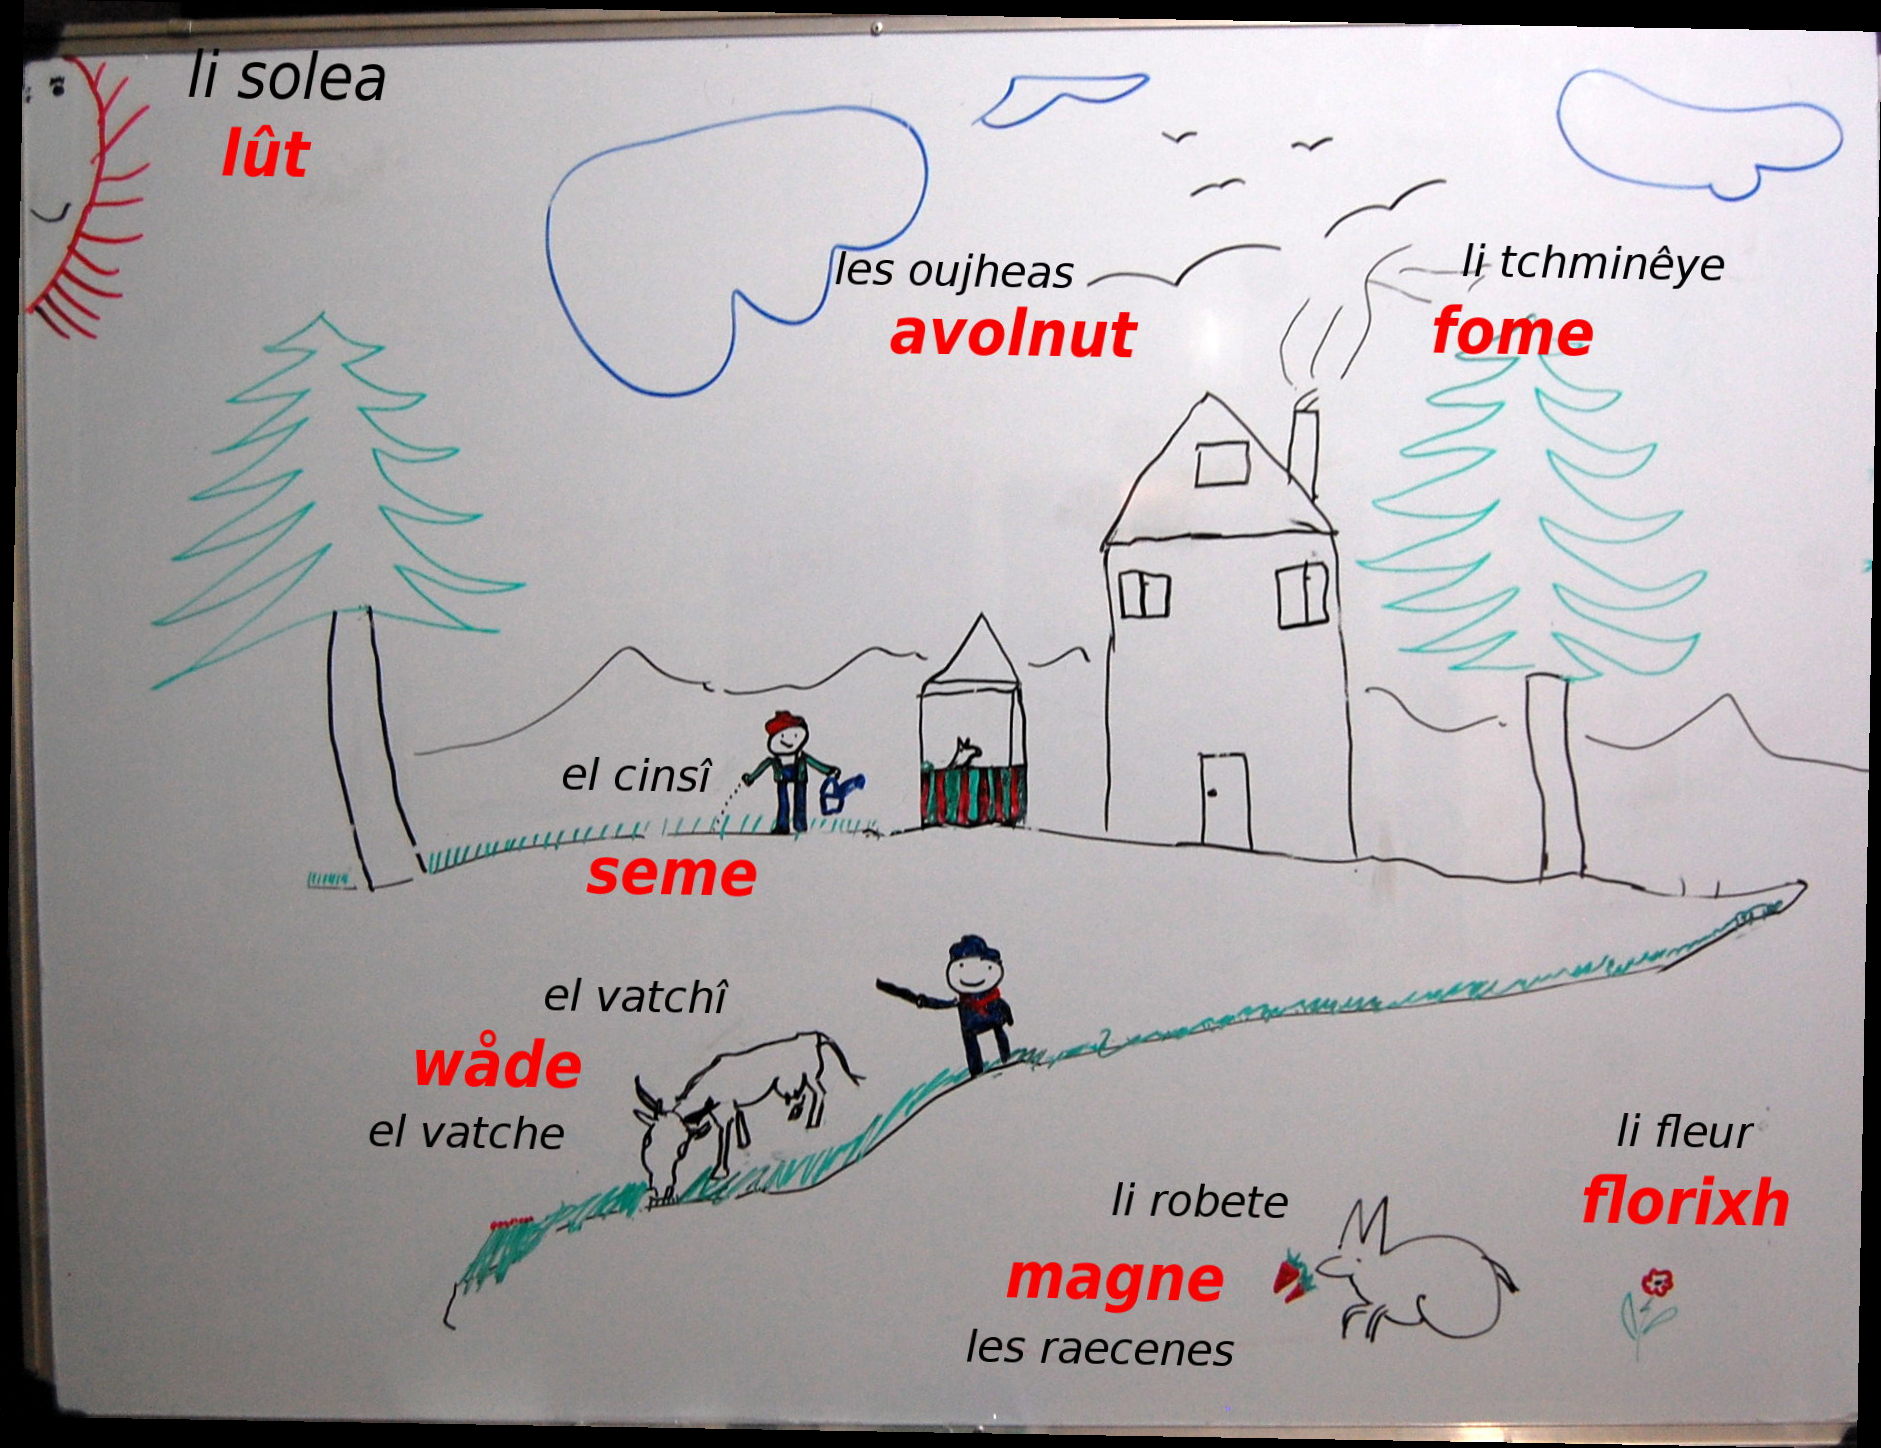 li solea
lût
les oujheas
avolnut
li tchminêye
fome
el cinsî
seme
el vatchî
wåde
el vatche
li robete
magne
les raecenes
li fleur
florixh